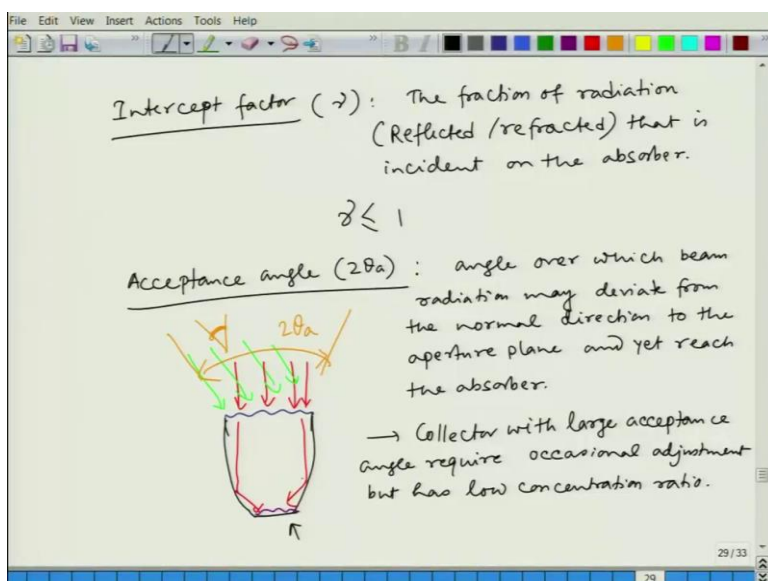 File Edit View Insert Actions Tools Help
B I
Intercept factor (γ): The fraction of radiation
(Reflected/refracted) that is
incident on the absorber.
γ ≤ 1
Acceptance angle (2θa): angle over which beam
radiation may deviate from
the normal direction to the
aperture plane and yet reach
the absorber.
2θa
→ Collector with large acceptance
angle require occasional adjustment
but has low concentration ratio.
29/33
29